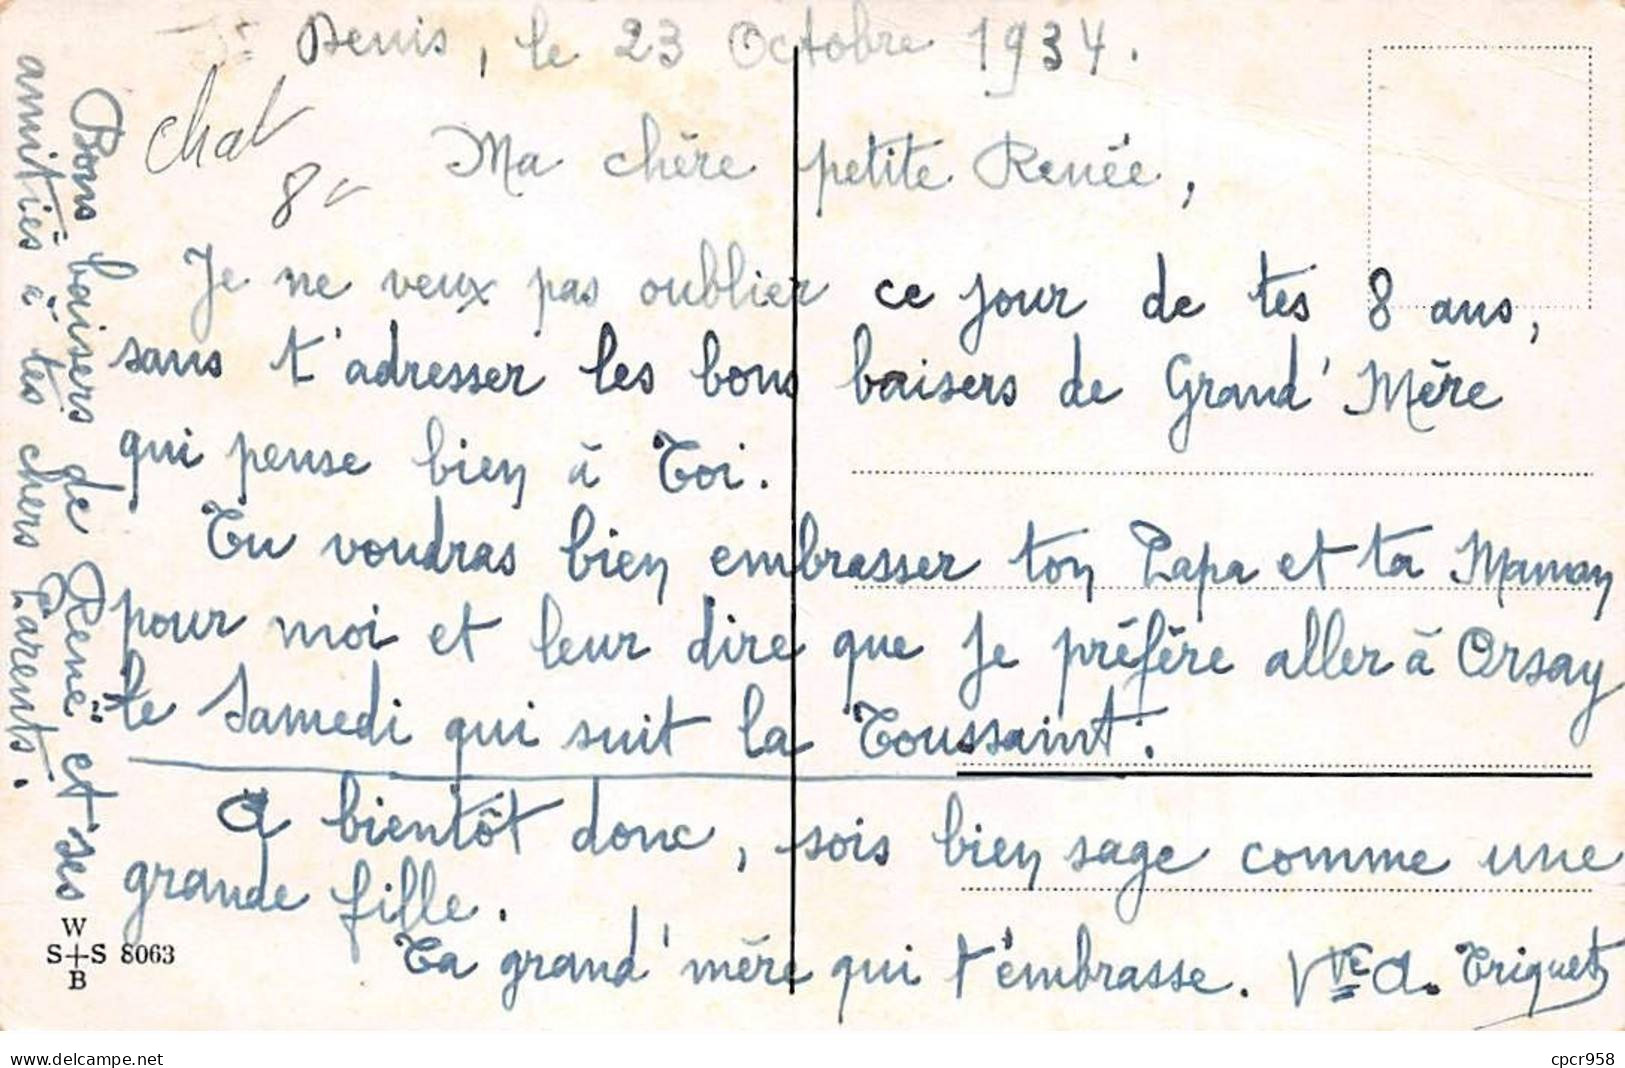 St Denis, le 23 Octobre 1934.
chat
8
Ma chère petite Renée,
Je ne veux pas oublier ce jour de tes 8 ans,
sans t'adresser les bons baisers de Grand'Mère
qui pense bien à Toi.
Tu voudras bien embrasser ton Papa et ta Maman
pour moi et leur dire que je préfère aller à Orsay
le Samedi qui suit la Toussaint.
A bientôt donc, sois bien sage comme une
grande fille.
Ta grand'mère qui t'embrasse. Vve A. Triquet
Bons baisers de René et ses
amitiés à tes chers Parents.
W
S+S 8063
B
www.delcampe.net
cpcr958